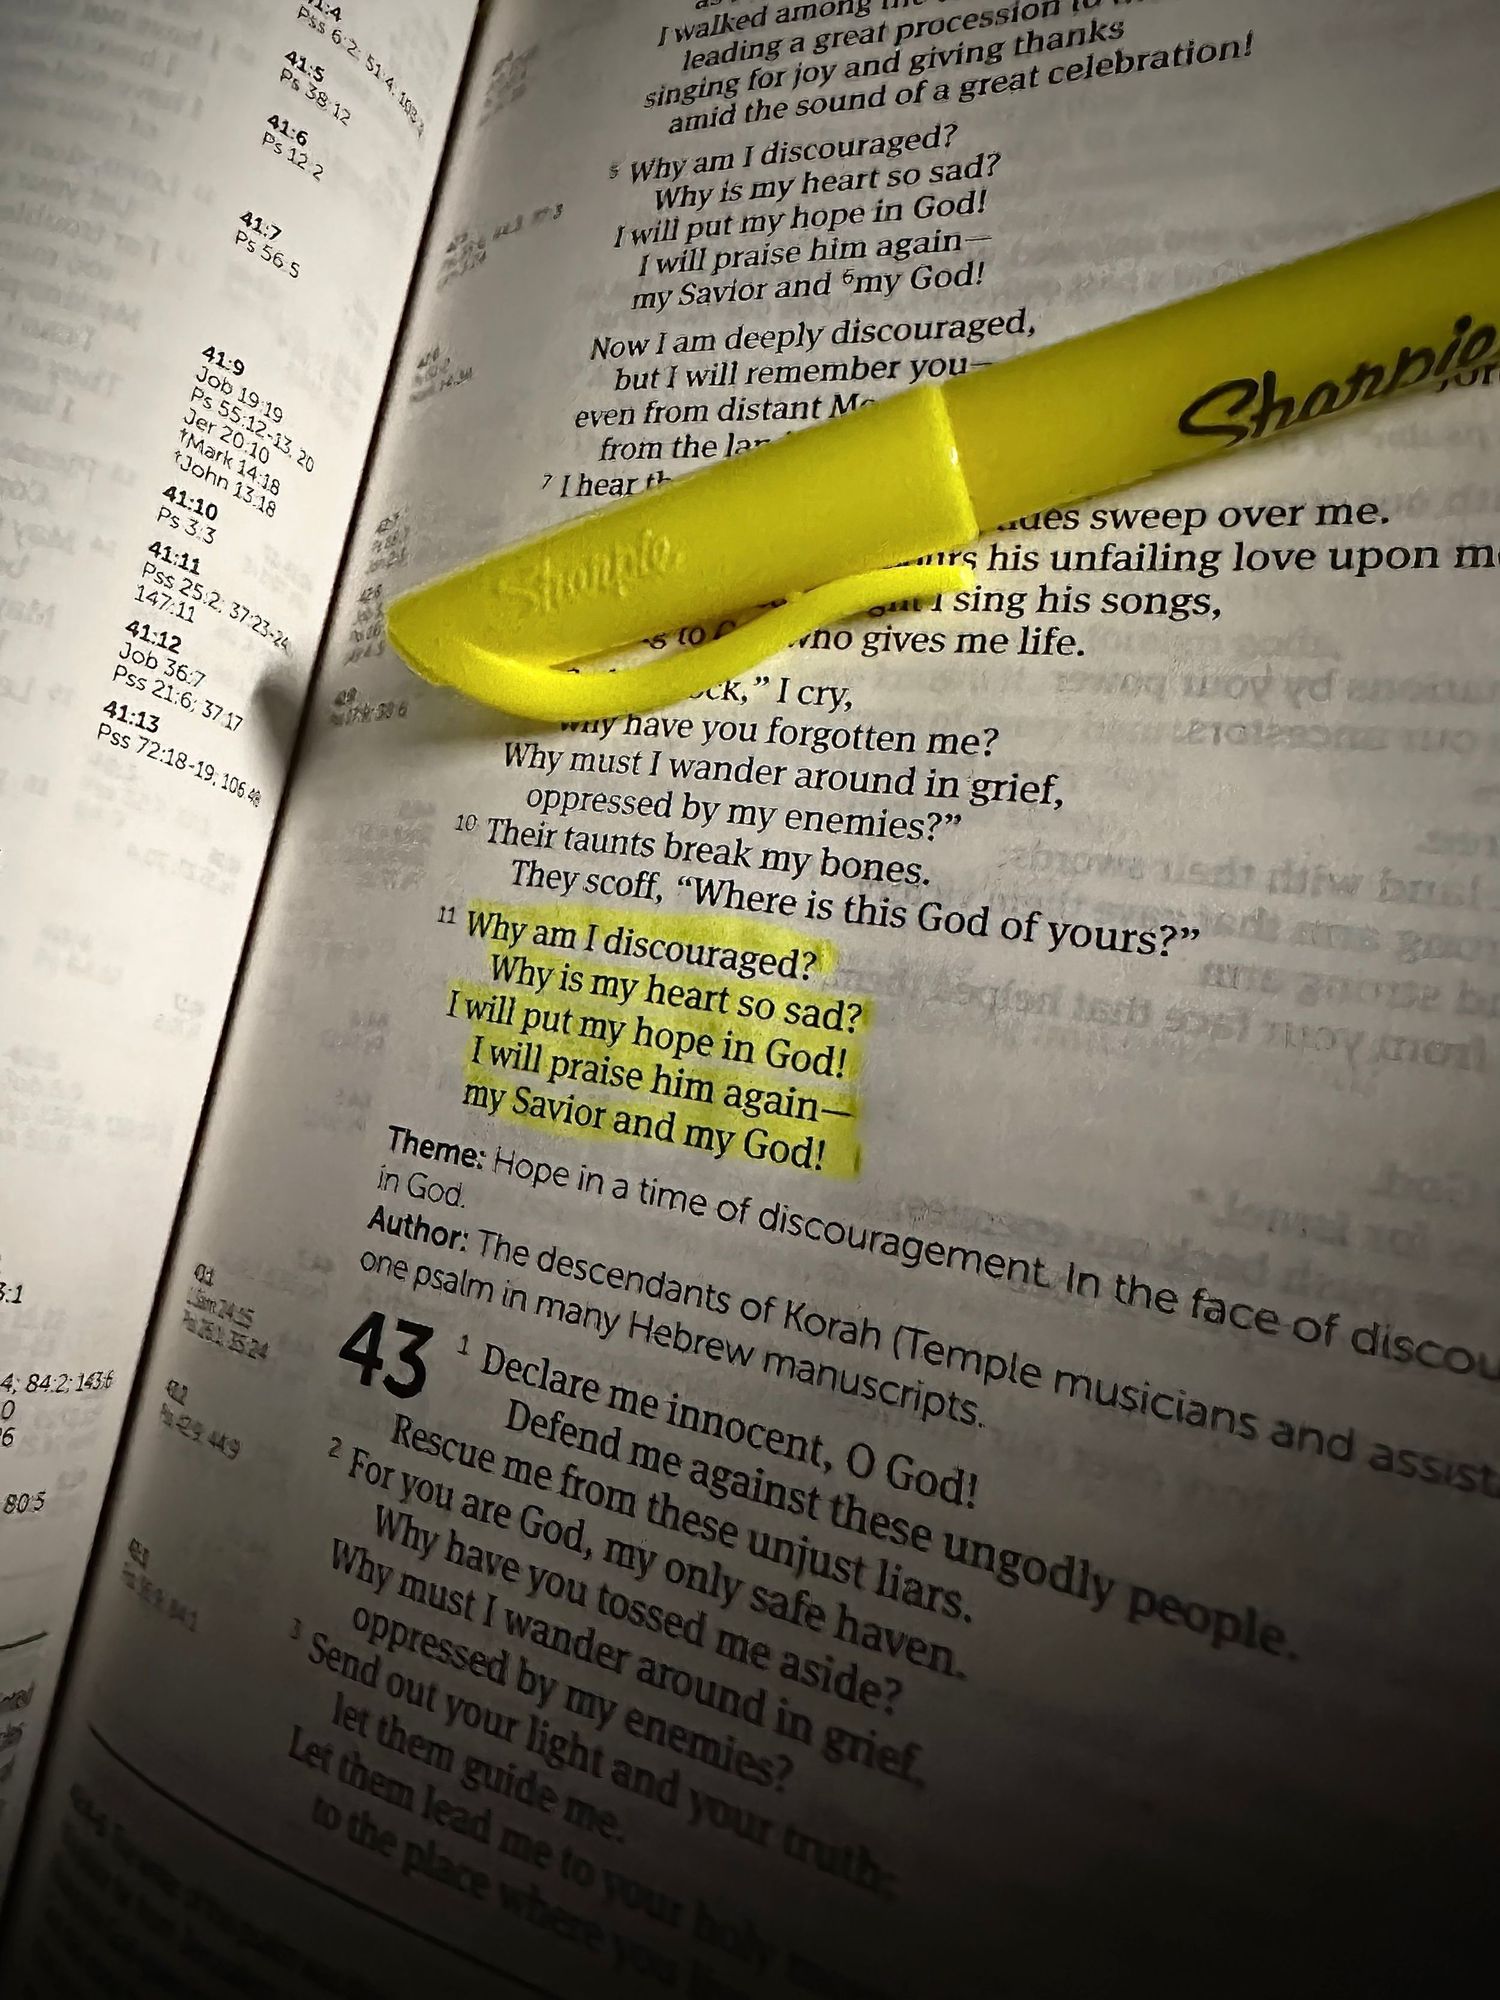 Pss 6:2; 51:4; 103:3
41:5
Ps 38:12
41:6
Ps 12:2
41:7
Ps 56:5
41:9
Job 19:19
Ps 55:12-13, 20
Jer 20:10
†Mark 14:18
†John 13:18
41:10
Ps 3:3
41:11
Pss 25:2; 37:23-24
147:11
41:12
Job 36:7
Pss 21:6; 37:17
41:13
Pss 72:18-19; 106:48
3:1
4; 84:2; 143:6
0
6
80:5
I walked among
leading a great procession to
singing for joy and giving thanks
amid the sound of a great celebration!
5 Why am I discouraged?
Why is my heart so sad?
I will put my hope in God!
I will praise him again—
my Savior and 6 my God!
Now I am deeply discouraged,
but I will remember you—
even from distant
from the
7 I hear
sweep over me.
his unfailing love upon
I sing his songs,
who gives me life.
I cry,
why have you forgotten me?
Why must I wander around in grief,
oppressed by my enemies?”
10 Their taunts break my bones.
They scoff, “Where is this God of yours?”
11 Why am I discouraged?
Why is my heart so sad?
I will put my hope in God!
I will praise him again—
my Savior and my God!
Theme: Hope in a time of discouragement. In the face of
in God.
Author: The descendants of Korah (Temple musicians and
one psalm in many Hebrew manuscripts.
43 1 Declare me innocent, O God!
Defend me against these ungodly people.
Rescue me from these unjust liars.
2 For you are God, my only safe haven.
Why have you tossed me aside?
Why must I wander around in grief,
oppressed by my enemies?
3 Send out your light and your truth;
let them guide me.
Let them lead me to your holy
to the place where you
Sharpie
Sharpie